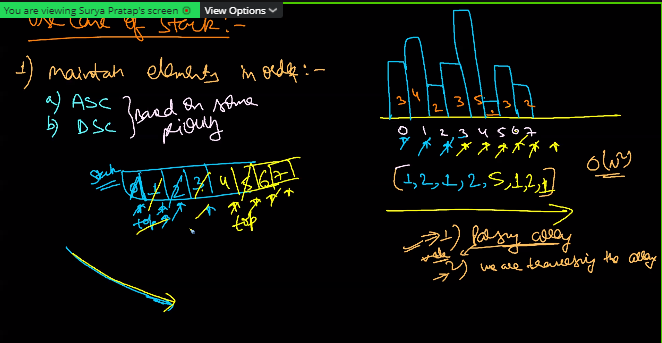 You are viewing Surya Pratap's screen View Options
use case of stack :-
1) maintain elements in order :-
a) ASC
b) DSC
based on some
priority
Stack
0 1 2 3 4 5 6 7
top
top
3 4 2 3 5 1 3 2
0 1 2 3 4 5 6 7
[1, 2, 1, 2, 5, 1, 2, 1]
O(N²)
1) array
2) we are traversing the array